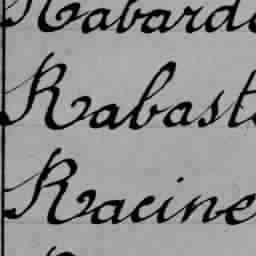 Rabard
Rabast
Racine